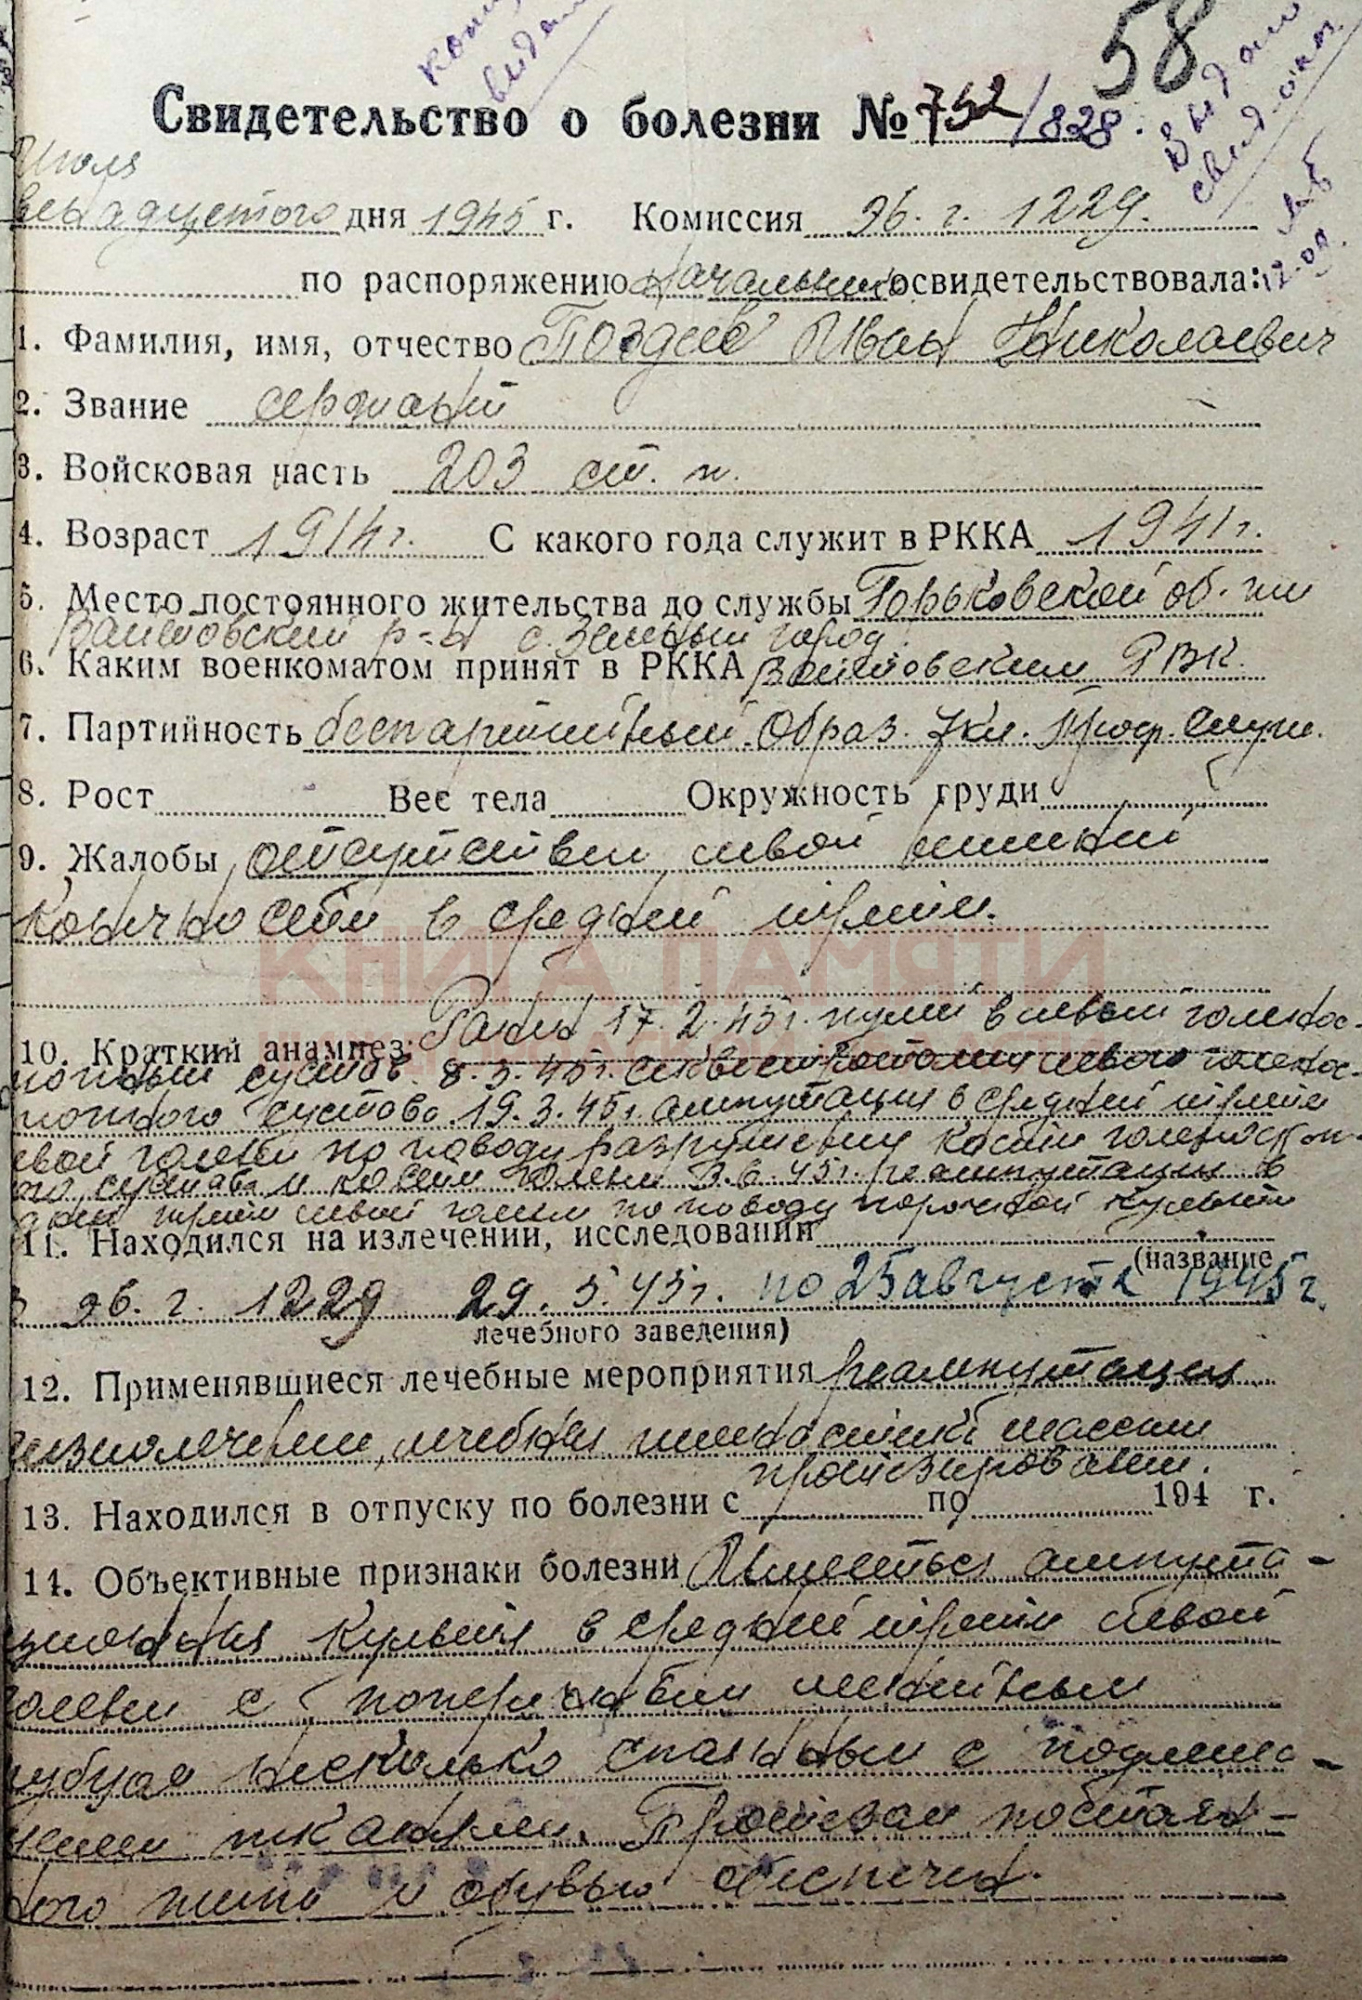 58
Свидетельство о болезни № 752/828.
Выдано
свид.
Июля
дня 1945 г. Комиссия эв. г. 1229.
по распоряжению начальника освидетельствовала:
1. Фамилия, имя, отчество Поздеев Иван Николаевич
2. Звание сержант
3. Войсковая часть 203 ст. п.
4. Возраст 1914 г. С какого года служит в РККА 1941 г.
5. Место постоянного жительства до службы Горьковской об-ти
р-н с. Зеленый город.
6. Каким военкоматом принят в РККА РВК.
7. Партийность беспартийный. Образ. 7 кл. Проф. служ.
8. Рост Вес тела Окружность груди
9. Жалобы отсутствие левой нижней
конечности в средней трети.
КНИГА ПАМЯТИ
Ранен 17.2.45 г. пулей в левый голенос-
10. Краткий анамнез:
топный сустав. 8.3.45 г. левого голенос-
топного сустава. 19.3.45 г. ампутация в средней трети
левой голени по поводу разрушения кости голеностоп-
ного сустава и костей голени 3.6.45 г. реампутация в
средней трети левой голени по поводу порочной культи
11. Находился на излечении, исследовании
(название
в эв. г. 1229 29.5.45 г. по 25 августа 1945 г.
лечебного заведения)
12. Применявшиеся лечебные мероприятия реампутация
физиолечение, лечебная гимнастика массаж
протезирование.
13. Находился в отпуску по болезни с по 194 г.
14. Объективные признаки болезни Имеется ампута-
ционная культя в средней трети левой
голени с поперечным линейным
рубцом несколько спаянным с подлежа-
щими тканями. Протезом постоян-
ного типа и обувью обеспечен.